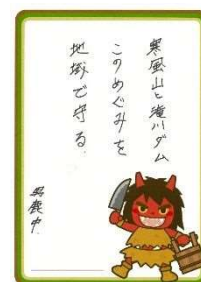 寒風山と滝川ダム
このめぐみを
地域で守る。
男鹿中